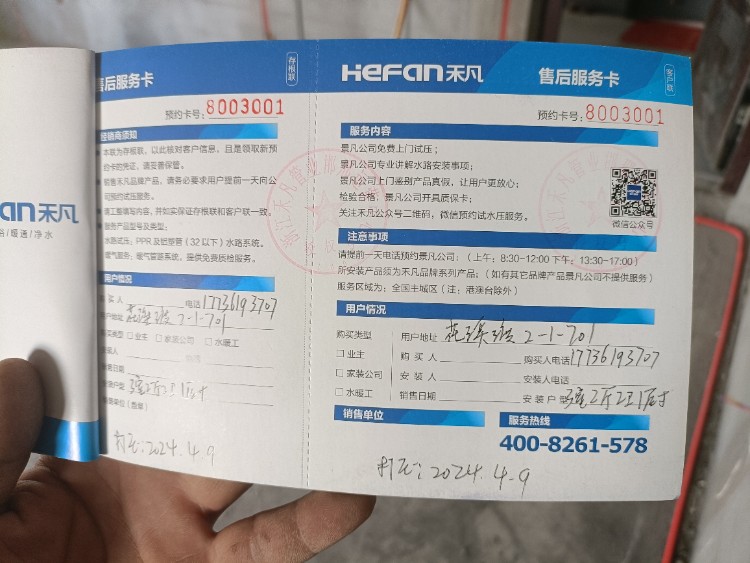 售后服务卡
存根联
预约卡号：8003001
经销商须知
本联为存根联，以此核对客户信息，且是领取新预
约卡的凭证，请妥善保管。
销售禾凡品牌产品，请务必要求用户提前一天向公
司预约试压服务。
请工整填写内容，并如实保证存根联和客户联一致。
服务产品型号及类型：
水路试压：PPR 及铝塑管（32以下）水路系统。
暖气服务：暖气管路系统，提供免费质检服务。
用户情况
买人
电话17736193707
用户地址
2-1-701
购买类型 □业主 □家装公司 □水暖工
an禾凡
/暖通/净水
打压：2024.4.9
HeFan禾凡
售后服务卡
客户联
预约卡号：8003001
服务内容
景凡公司免费上门试压；
景凡公司专业讲解水路安装事项；
景凡公司上门鉴别产品真假，让用户更放心；
检验合格，景凡公司开具质保卡；
关注禾凡公众号二维码，微信预约试水压服务。
微信公众号
注意事项
请提前一天电话预约景凡公司：（上午：8:30-12:00 下午：13:30-17:00）
所安装产品须为禾凡品牌系列产品；（如有其它品牌产品景凡公司不提供服务）
服务区域为：全国主城区（注：港澳台除外）
用户情况
购买类型 用户地址 2-1-701
□业主 购买人 购买人电话17736193707
□家装公司 安装人 安装人电话
□水暖工 销售日期 安装户型 2厅2卫1厨
销售单位
服务热线
400-8261-578
打压：2024.4.9